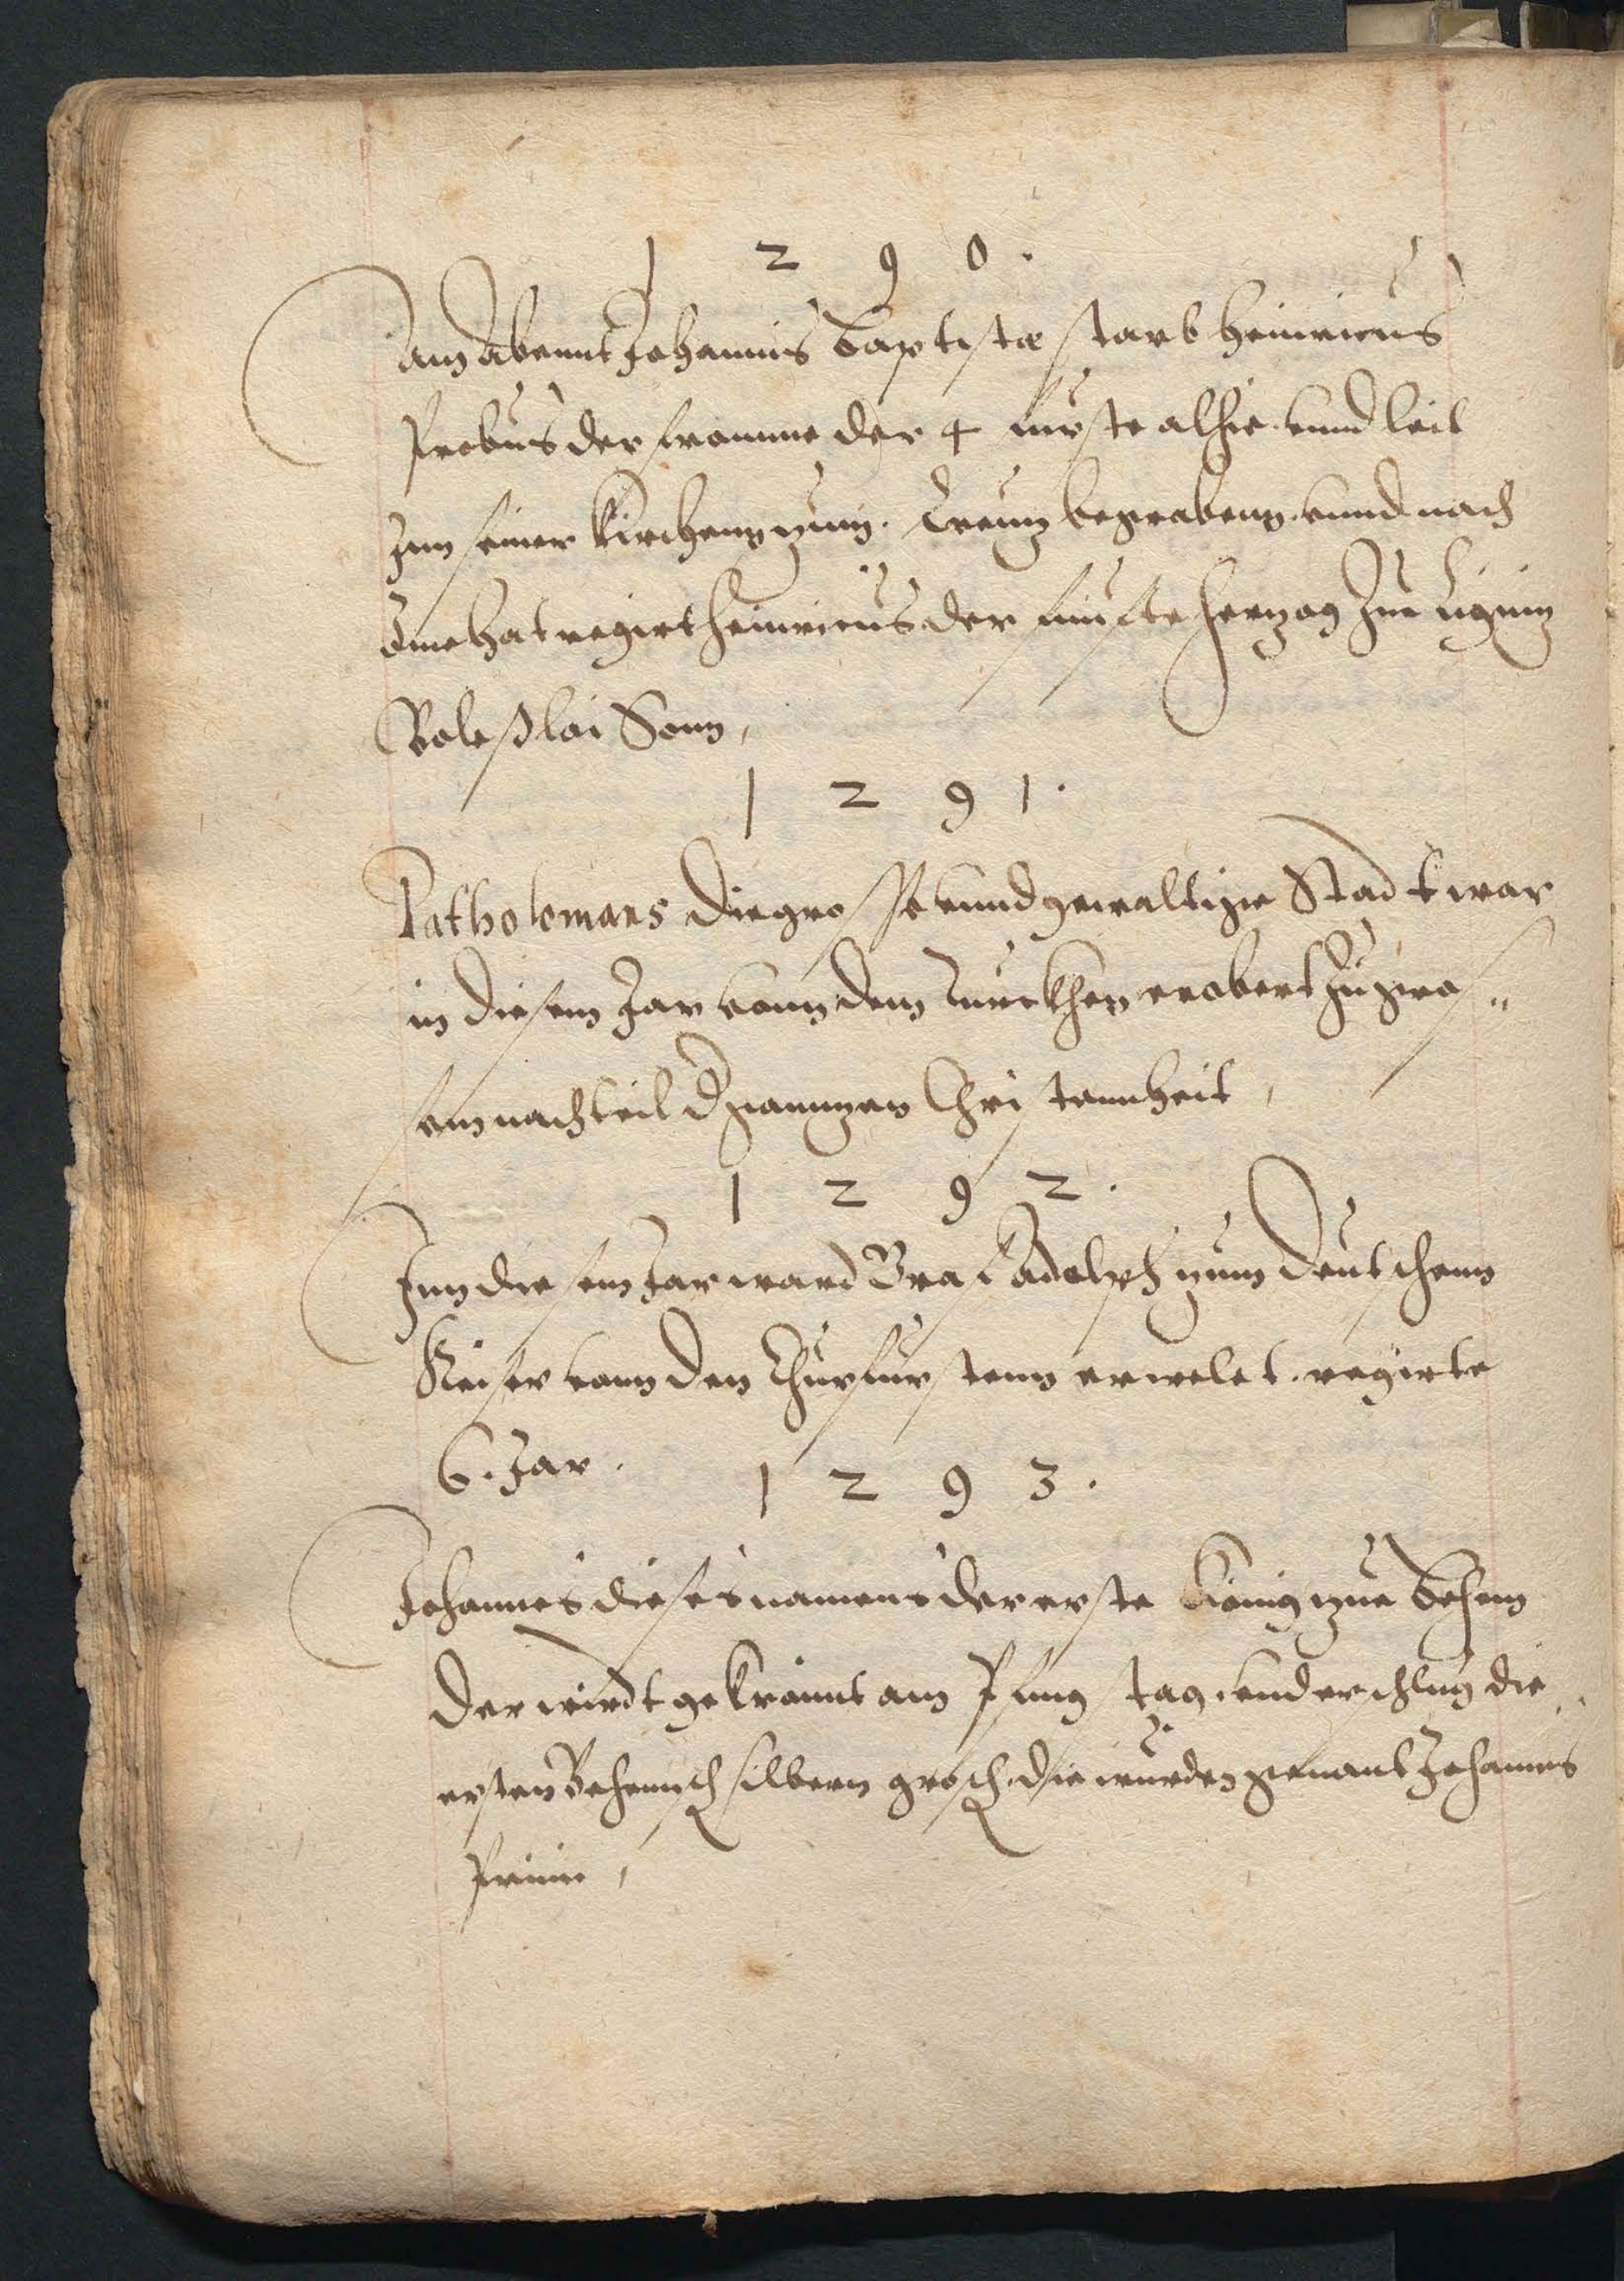 1 2 9 0 .
Am Abennt Johannis Baptistæ starb Heinricus
Probus der fromme der 4 furste alhie. vnnd leit
Inn seiner Kirchenn zum. Creutz begrabenn. vnnd nach
Ime hat regirt Heinricus der funfte Hertzog Zue Lignitz
Boleßlai Sonn,
1 2 9 1 .
Ptatholomaes die grosse vnnd gewaltige Stadt war
in diesem Jar vonn dem Turckhen erobert Zu gros„
sem nachteil d gantzen Christennheit,
1 2 9 2 .
Inn diesem Jar ward Graf Adolph zum Deutschenn
Keiser vonn den Churfurstenn erwelet. regirte
6. Jar.
1 2 9 3 .
Johannes dieses namens der erste Konig zue Behem
der wirdt gekrönnt am Pfingstag. vnd erschlug die
ersten Behemisch silbern grosch. die wurden genant Johannes
Primi,